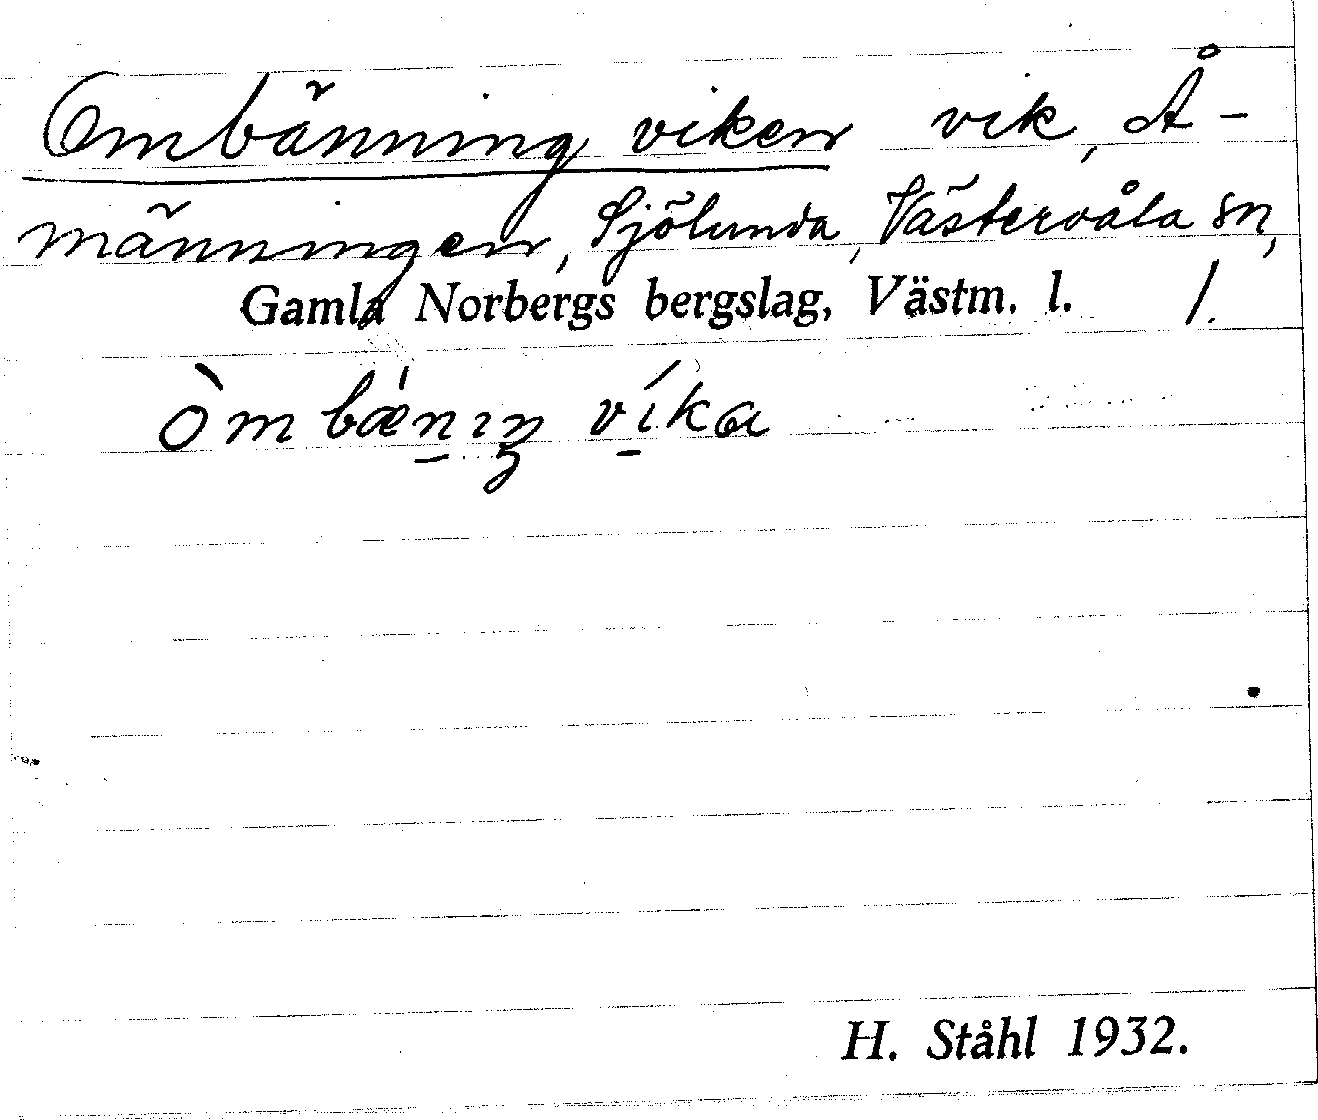 Ombänning viken vik, Å-
männingen, Sjölunda, Västervåla sn,
Gamla Norbergs bergslag, Västm. l. 1.
òmbæ̀nıŋ víka
H. Ståhl 1932.